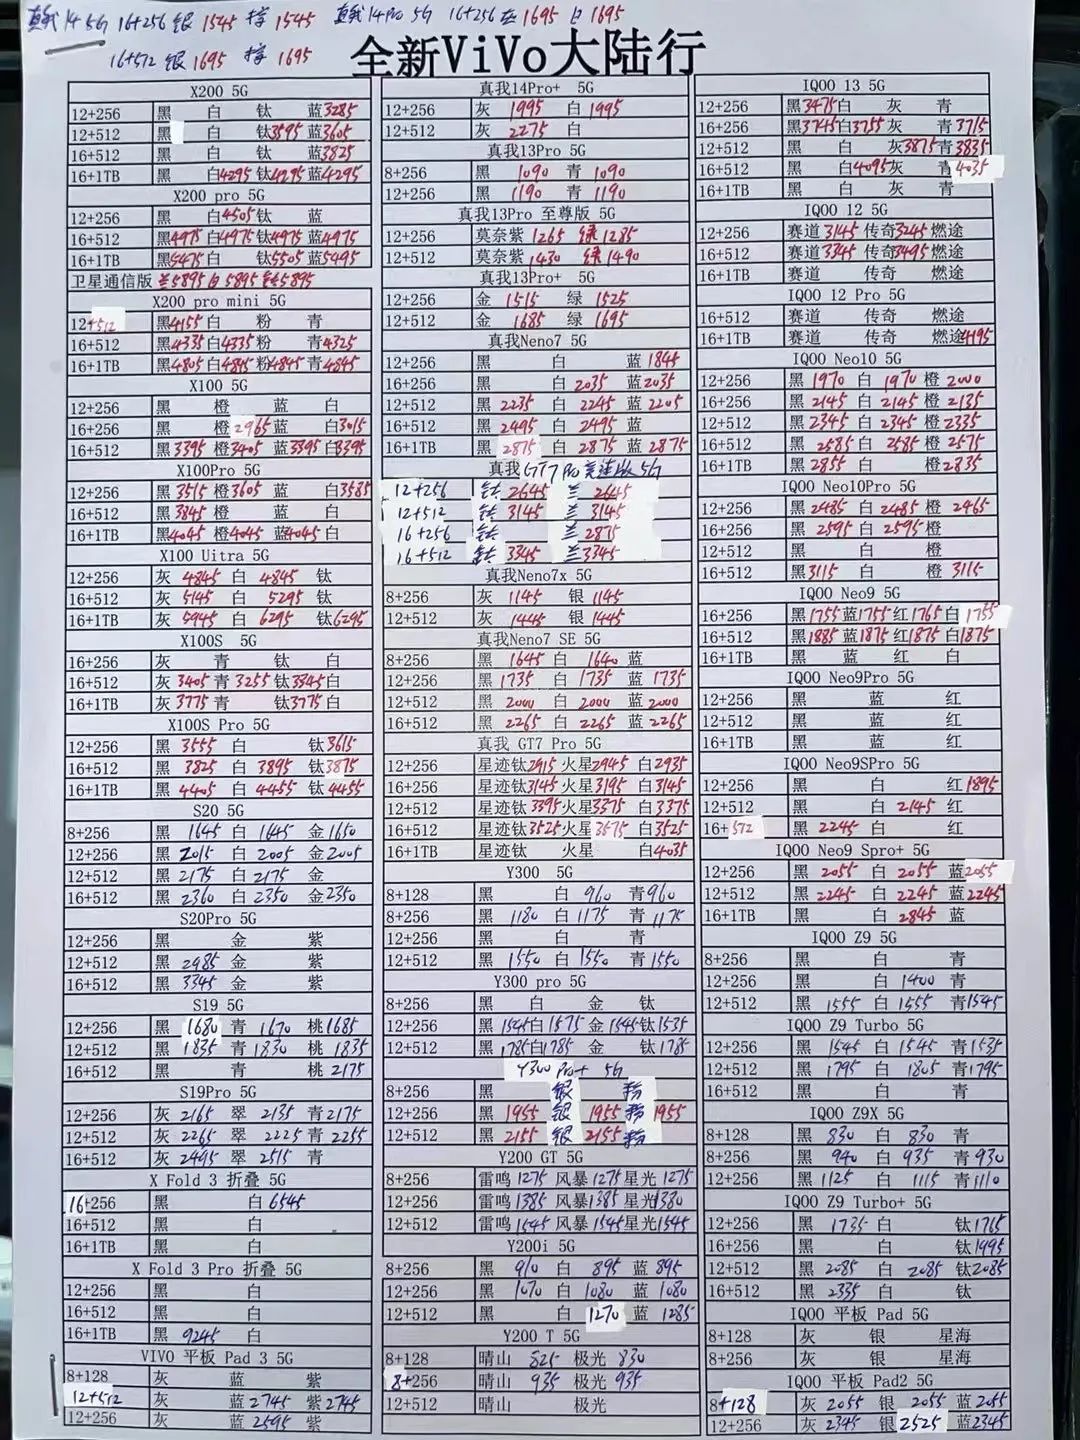 真我14 5G 16+256 银 1545 橙 1545 真我14Pro 5G 16+256 灰 1695 白 1695
16+512 银 1695 橙 1695
全新ViVo大陆行
X200 5G
12+256 黑 白 钛 蓝3285
12+512 黑 白 钛3595 蓝3605
16+512 黑 白 钛 蓝3825
16+1TB 黑 白4295 钛4295 蓝4295
X200 pro 5G
12+256 黑 白4505 钛 蓝
16+512 黑4975 白4975 钛4975 蓝4975
16+1TB 黑5475 白 钛5505 蓝5495
卫星通信版 兰5895 白5895 钛5895
X200 pro mini 5G
12+512 黑4155 白 粉 青
16+512 黑4335 白4335 粉 青4325
16+1TB 黑4805 白4845 粉4845 青4845
X100 5G
12+256 黑 橙 蓝 白
16+256 黑 橙2965 蓝 白3015
16+512 黑3395 橙3405 蓝3395 白3395
X100Pro 5G
12+256 黑3515 橙3605 蓝 白3585
16+512 黑3845 橙 蓝 白
16+1TB 黑4045 橙4045 蓝4045 白
X100 Uitra 5G
12+256 灰 4845 白 4845 钛
16+512 灰 5145 白 5295 钛
16+1TB 灰 5945 白 6295 钛6295
X100S 5G
16+256 灰 青 钛 白
16+512 灰 3405 青 3255 钛3345 白
16+1TB 灰 3775 青 钛3775 白
X100S Pro 5G
12+256 黑 3555 白 钛3615
16+512 黑 3825 白 3895 钛3875
16+1TB 黑 4405 白 4455 钛 4455
S20 5G
8+256 黑 1645 白 1645 金1650
12+256 黑 2015 白 2005 金2005
12+512 黑 2175 白 2175 金
16+512 黑 2360 白 2350 金2350
S20Pro 5G
12+256 黑 金 紫
12+512 黑 2985 金 紫
16+512 黑 3345 金 紫
S19 5G
12+256 黑 1680 青 1670 桃1685
12+512 黑 1835 青 1830 桃 1835
16+512 黑 青 桃 2175
S19Pro 5G
12+256 灰 2165 翠 2135 青2175
12+512 灰 2265 翠 2225 青 2255
16+512 灰 2495 翠 2515 青
X Fold 3 折叠 5G
16+256 黑 白 6545
16+512 黑 白
16+1TB 黑 白
X Fold 3 Pro 折叠 5G
12+256 黑 白
16+512 黑 白
16+1TB 黑 9245 白
VIVO 平板 Pad 3 5G
8+128 灰 蓝 紫
12+512 灰 蓝 2745 紫2745
12+256 灰 蓝 2595 紫
真我14Pro+ 5G
12+256 灰 1995 白 1995
12+512 灰 2275 白
真我13Pro 5G
8+256 黑 1090 青 1090
12+256 黑 1190 青 1190
真我13Pro 至尊版 5G
12+256 莫奈紫 1265 绿 1285
12+512 莫奈紫 1430 绿 1490
真我13Pro+ 5G
12+256 金 1515 绿 1525
12+512 金 1685 绿 1695
真我Neno7 5G
12+256 黑 白 蓝 1845
16+256 黑 白 2035 蓝2035
12+512 黑 2235 白 2245 蓝 2205
16+512 黑 2495 白 2495 蓝
16+1TB 黑 2875 白 2875 蓝 2875
真我GT7 Pro 竞速版 5G
12+256 钛 2645 兰 2645
12+512 钛 3145 兰 3145
16+256 钛 兰 2875
16+512 钛 3345 兰3345
真我Neno7x 5G
8+256 灰 1145 银 1145
12+512 灰 1445 银 1445
真我Neno7 SE 5G
8+256 黑 1645 白 1640 蓝
12+256 黑 1735 白 1735 蓝 1735
12+512 黑 2000 白 2000 蓝2000
16+512 黑 2265 白 2265 蓝 2265
真我 GT7 Pro 5G
12+256 星迹钛2915 火星2945 白2935
16+256 星迹钛3145 火星3195 白3145
12+512 星迹钛3395 火星3375 白3375
16+512 星迹钛3525 火星3575 白3525
16+1TB 星迹钛 火星 白4035
Y300 5G
8+128 黑 白 960 青960
8+256 黑 1180 白1175 青1175
12+256 黑 白 青
12+512 黑 1550 白 1550 青1550
Y300 pro 5G
8+256 黑 白 金 钛
12+256 黑1545 白1575 金1545 钛1535
12+512 黑1785 白1785 金 钛1785
Y300 Pro+ 5G
8+256 黑 银 粉
12+256 黑 1955 银 1955 粉 1955
12+512 黑 2155 银 2155 粉
Y200 GT 5G
8+256 雷鸣1275 风暴1275 星光1275
12+256 雷鸣1385 风暴1385 星光1380
12+512 雷鸣1545 风暴1545 星光1545
Y200i 5G
8+256 黑 910 白 895 蓝 895
12+256 黑 1070 白 1080 蓝 1080
12+512 黑 白 1270 蓝 1285
Y200 T 5G
8+128 晴山 825 极光 830
8+256 晴山 935 极光 935
12+512 晴山 极光
IQOO 13 5G
12+256 黑3475 白 灰 青
16+256 黑3745 白3755 灰 青3715
12+512 黑 白 灰3875 青3835
16+512 黑 白4095 灰 青4035
16+1TB 黑 白 灰 青
IQOO 12 5G
12+256 赛道 3145 传奇3245 燃途
16+512 赛道 3345 传奇3495 燃途
16+1TB 赛道 传奇 燃途
IQOO 12 Pro 5G
16+256 赛道 传奇 燃途
16+1TB 赛道 传奇 燃途4195
IQOO Neo10 5G
12+256 黑 1970 白 1970 橙 2000
16+256 黑 2145 白 2145 橙 2135
12+512 黑 2345 白 2345 橙2335
16+512 黑 2585 白 2585 橙 2575
16+1TB 黑 2855 白 橙2835
IQOO Neo10Pro 5G
12+256 黑 2485 白 2485 橙 2465
16+256 黑 2595 白 2595 橙
12+512 黑 白 橙
16+512 黑3115 白 橙 3115
IQOO Neo9 5G
16+256 黑1755 蓝1755 红1765 白 1755
16+512 黑1885 蓝1875 红1875 白1875
16+1TB 黑 蓝 红 白
IQOO Neo9Pro 5G
12+256 黑 蓝 红
12+512 黑 蓝 红
16+1TB 黑 蓝 红
IQOO Neo9SPro 5G
12+256 黑 白 红1895
12+512 黑 白 2145 红
16+512 黑 2245 白 红
IQOO Neo9 Spro+ 5G
12+256 黑 2055 白 2055 蓝2055
12+512 黑 2245 白 2245 蓝2245
16+1TB 黑 白 2845 蓝
IQOO Z9 5G
8+256 黑 白 青
12+256 黑 白 1400 青
12+512 黑 1555 白 1555 青1545
IQOO Z9 Turbo 5G
12+256 黑 1545 白 1545 青1535
12+512 黑 1795 白 1805 青1795
16+512 黑 白 青
IQOO Z9X 5G
8+128 黑 830 白 830 青
8+256 黑 940 白 935 青930
12+256 黑 1125 白 1115 青1110
IQOO Z9 Turbo+ 5G
12+256 黑 1735 白 钛1765
16+256 黑 白 钛1995
12+512 黑 2085 白 2085 钛2085
16+512 黑 2335 白 钛
IQOO 平板 Pad 5G
8+128 灰 银 星海
8+256 灰 银 星海
IQOO 平板 Pad2 5G
8+128 灰 2055 银 2055 蓝 2055
12+256 灰 2345 银 2525 蓝2345